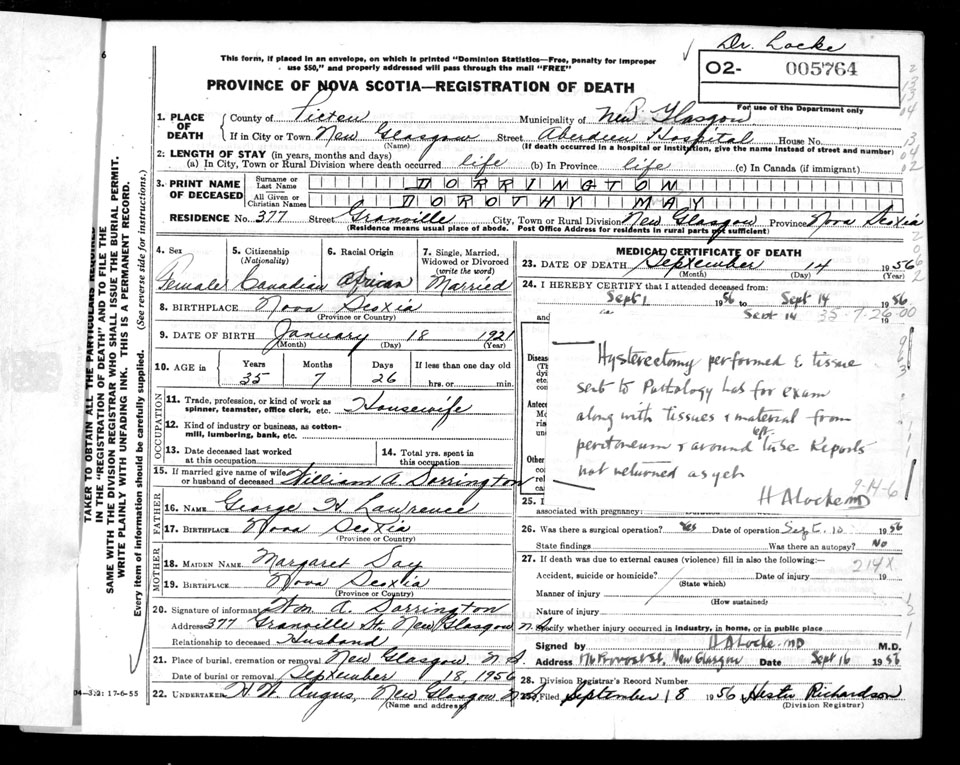 Dr. Locke
O2- 005764
For use of the Department only
This form, if placed in an envelope, on which is printed "Dominion Statistics—Free, penalty for improper
use $50," and properly addressed will pass through the mail "FREE"
PROVINCE OF NOVA SCOTIA—REGISTRATION OF DEATH
TAKER TO OBTAIN ALL THE PARTICULARS REQUIRED
IN THE "REGISTRATION OF DEATH" AND TO FILE THE
SAME WITH THE DIVISION REGISTRAR WHO SHALL ISSUE THE BURIAL PERMIT.
WRITE PLAINLY WITH UNFADING INK. THIS IS A PERMANENT RECORD.
Every item of information should be carefully supplied. (See reverse side for instructions.)
1. PLACE OF DEATH
County of Pictou Municipality of New Glasgow
If in City or Town New Glasgow Street Aberdeen Hospital House No.
(Name) (If death occurred in a hospital or institution, give the name instead of street and number)
2. LENGTH OF STAY (in years, months and days)
(a) In City, Town or Rural Division where death occurred life (b) In Province life (c) In Canada (if immigrant)
3. PRINT NAME OF DECEASED
Surname or Last Name DORRINGTON
All Given or Christian Names DOROTHY MAY
RESIDENCE No. 377 Street Granville City, Town or Rural Division New Glasgow Province Nova Scotia
(Residence means usual place of abode. Post Office Address for residents in rural parts not sufficient)
4. Sex Female
5. Citizenship (Nationality) Canadian
6. Racial Origin African
7. Single, Married, Widowed or Divorced (write the word) Married
8. BIRTHPLACE Nova Scotia
(Province or Country)
9. DATE OF BIRTH January 18 1921
(Month) (Day) (Year)
10. AGE in Years 35 Months 7 Days 26 If less than one day old hrs. or min.
OCCUPATION
11. Trade, profession, or kind of work as spinner, teamster, office clerk, etc. Housewife
12. Kind of industry or business, as cotton-mill, lumbering, bank, etc.
13. Date deceased last worked at this occupation
14. Total yrs. spent in this occupation
15. If married give name of wife or husband of deceased William A. Dorrington
FATHER
16. NAME George H Lawrence
17. BIRTHPLACE Nova Scotia
(Province or Country)
MOTHER
18. MAIDEN NAME Margaret Day
19. BIRTHPLACE Nova Scotia
(Province or Country)
20. Signature of informant Wm. A. Dorrington
Address 377 Granville St. New Glasgow N.S.
Relationship to deceased Husband
21. Place of burial, cremation or removal New Glasgow, N.S.
Date of burial or removal September 18, 1956
22. UNDERTAKER H.W. Angus, New Glasgow N.S.
(Name and address)
04-322: 17-6-55
MEDICAL CERTIFICATE OF DEATH
23. DATE OF DEATH September 14 1956
(Month) (Day) (Year)
24. I HEREBY CERTIFY that I attended deceased from:
Sept 1 1956 to Sept 14 1956.
and Sept 14 19
35-7-26-00
Hysterectomy performed & tissue
sent to Pathology Lab for exam
along with tissues & material from
peritoneum & around left tube Reports
not returned as yet
H A Locke MD
9-14-6
25. I
associated with pregnancy:
26. Was there a surgical operation? Yes Date of operation Sept. 10 1956
State findings Was there an autopsy? No
27. If death was due to external causes (violence) fill in also the following:—
214X
Accident, suicide or homicide? Date of injury 19
(State which)
Manner of injury
(How sustained)
Nature of injury
Specify whether injury occurred in industry, in home, or in public place
Signed by H A Locke MD M.D.
Address 176 Provost St. New Glasgow Date Sept 16 1956
28. Division Registrar's Record Number
29. Filed September 18 1956 Hester Richardson
(Division Registrar)